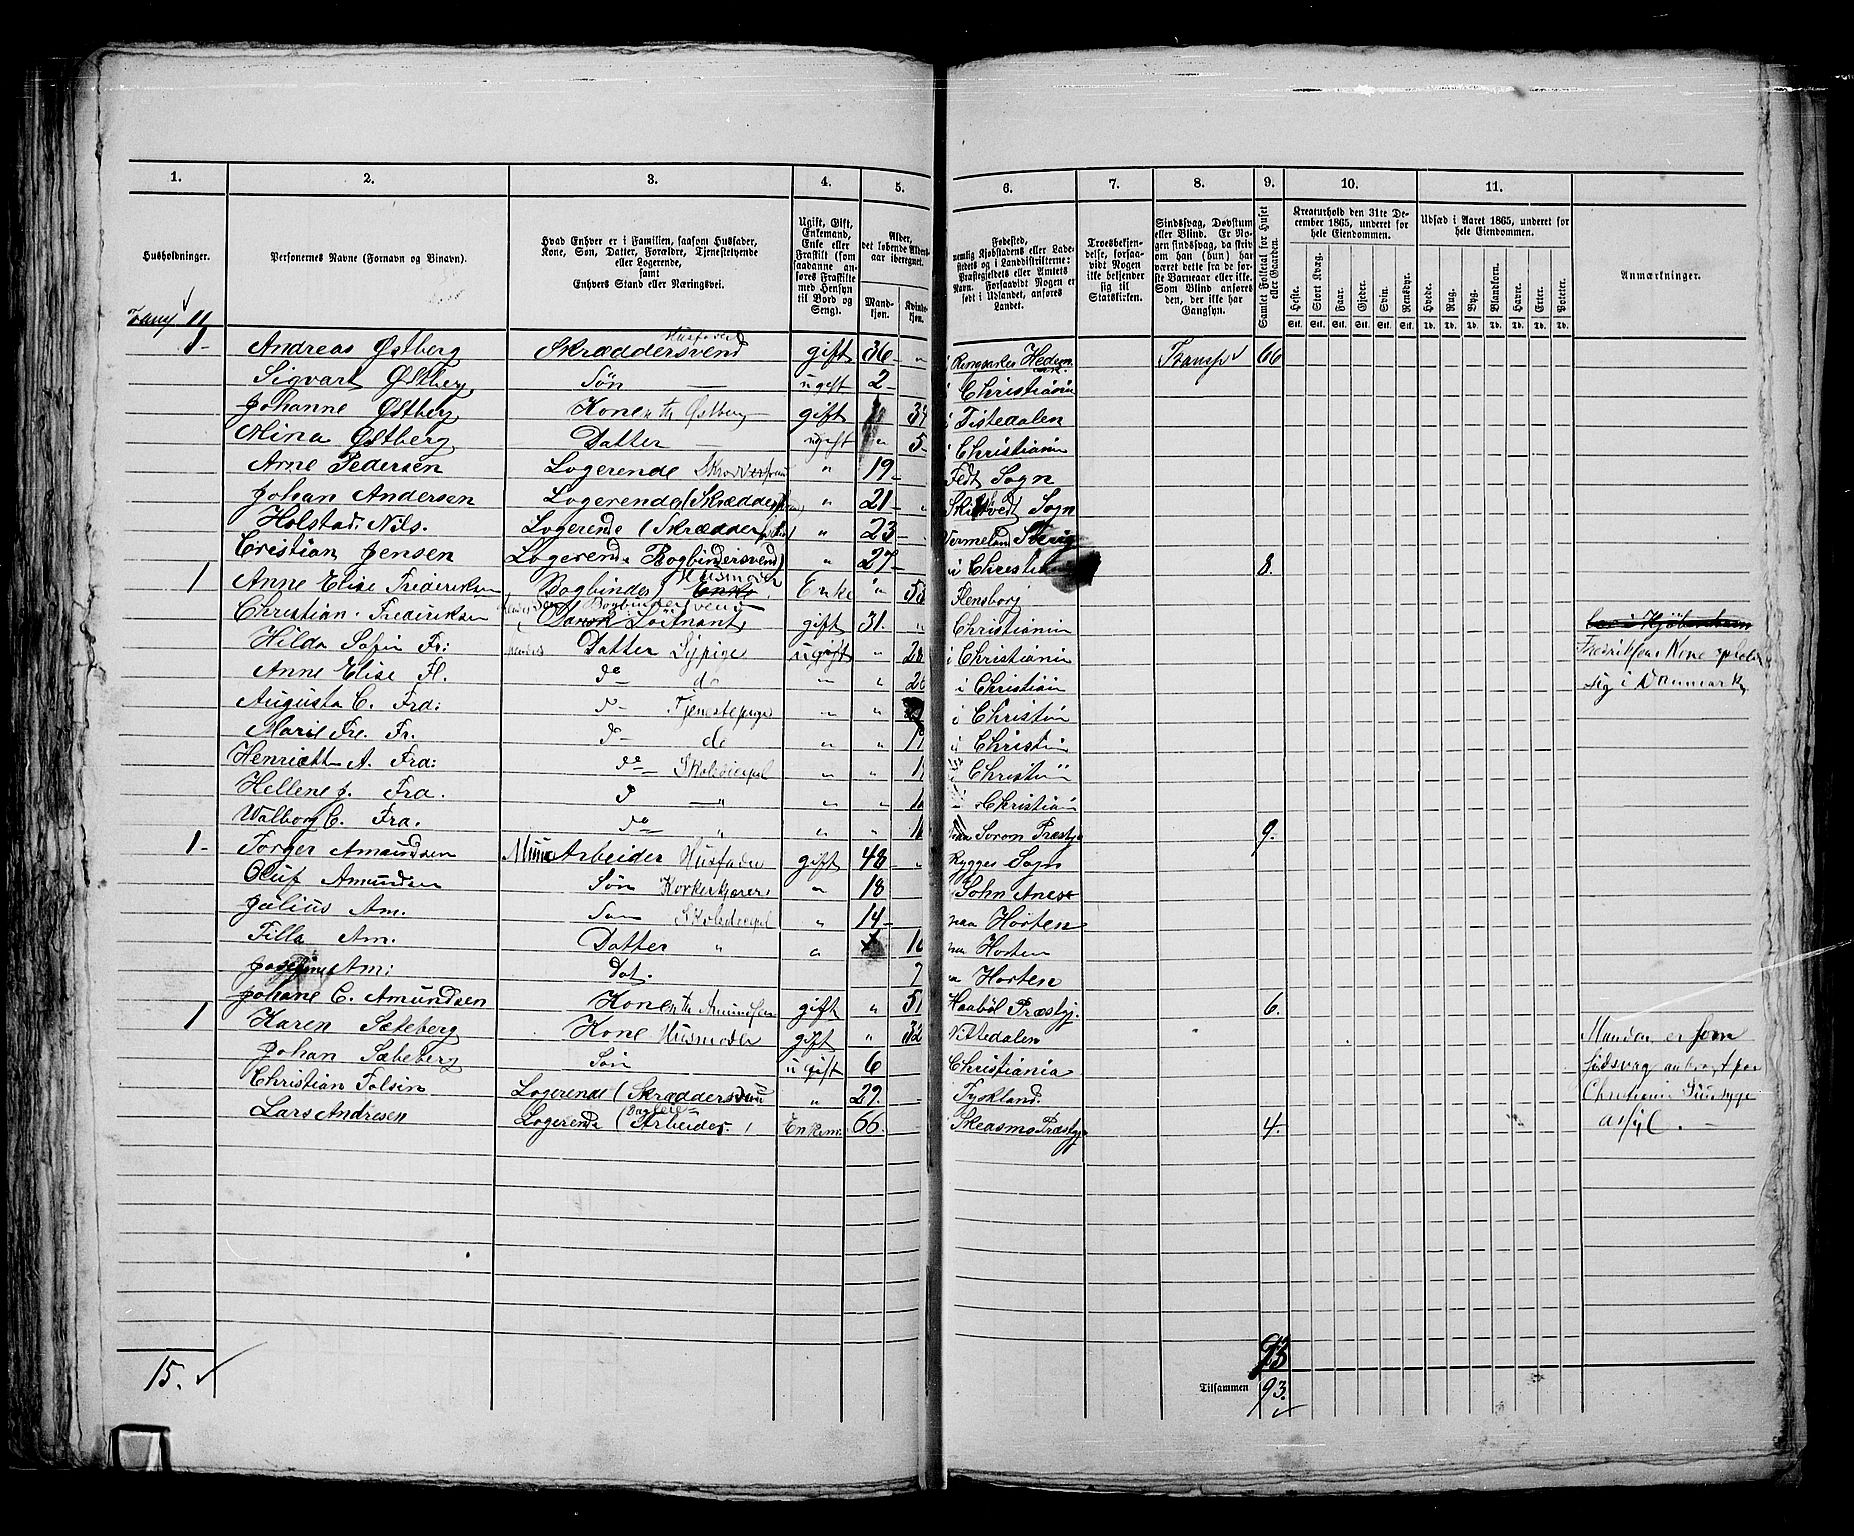 1. 2. 3. 4. 5. 6. 7. 8. 9. 10. 11.
Husholdninger.
Personernes Navne (Fornavn og Binavn).
Hvad Enhver er i Familien, saasom Husfader,
Kone, Søn, Datter, Forældre, Tjenestetyende
eller Logerende,
samt
Enhvers Stand eller Næringsvei.
Ugift, Gift,
Enkemand,
Enke eller
Fraskilt (som
saadanne an-
føres Fraskilte
med Hensyn
til Bord og
Seng).
Alder,
det løbende Alders-
aar iberegnet.
Mand-
kjøn.
Kvinde-
kjøn.
Fødested,
nemlig Kjøbstadens eller Lade-
stedets og i Landdistrikterne:
Præstegjeldets eller Amtets
Navn. Forsaavidt Nogen er
født i Udlandet, anføres
Landet.
Troesbekjen-
delse, forsaa-
vidt Nogen
ikke bekjender
sig til
Statskirken.
Sindssvag, Døvstum
eller Blind. Er No-
gen sindssvag, da skriv
om han (hun) har
været dette fra de før-
ste Barneaar eller ikke.
Som Blind anføres
den, der ikke har
Gangsyn.
Samlet Folketal for Huset
eller Gaarden.
Kreaturhold den 31te De-
cember 1865, underet for
hele Eiendommen.
Heste. Stort Kvæg. Faar. Gjeder. Svin. Rensdyr.
Stk. Stk. Stk. Stk. Stk. Stk.
Udsæd i Aaret 1865, underet for
hele Eiendommen.
Hvede. Rug. Byg. Blandkorn. Havre. Erter. Poteter.
Td. Td. Td. Td. Td. Td. Td.
Anmærkninger.
11
1- Andreas Østberg Skræddersvend Husfader gift 36 - „ i Ringsaker Hedem Transp 66
Sigvart Østberg Søn — ugift 2 - i Christiania
Johanne Østberg Kone Østberg gift 34 i Tistedalen
Mina Østberg Datter — ugift „ 5 i Christiania
Arne Pedersen Logerende „ 19 - Sogn
Johan Andersen Logerende (Skrædder „ 21 - Sogn
Holstad. Nils. Logerende (Skrædder „ 23 - Vermeland
Cristian Jensen Logerende Bogbindersvend) „ 27 - i Christiania 8.
1 Anne Elise Frederiksen Bogbinder Enke Husmoder Enke „ Flensborg
Christian. Frederiksen Bogbindersvend Dansk Løitnant gift 31. „ Christiania
Hilda Sofie Fr: Datter Sypige ugift „ i Christiania
Anne Elise Fl. do do „ „ i Christiania
Fredriksens Kone
sig i Danmark
Augusta C. Fra: d- Tjenestepige „ „ i Christiania
Marie Fre. Fr. d- do „ „ i Christiania
Henriette A. Fra: do Skolediscipel „ „ i Christiania
Hellene J. Fra. d — „ „ „ i Christiania
Walborg C. Fra. do „ „ „ 9.
1- Torger Amundsen Arbeider Husfader gift 48 - „ Rygges Sogn
Oluf Amundsen Søn „ 18
Julius Am. Søn Skolediscipel „ 14 - paa Horten
Tilla Am. Datter „ „ paa Horten
Josefine Am: Dat. 7 paa Horten
Johane C. Amundsen Kone Amundsen gift „ 51 Haabøl Præstgj. 6.
1 Karen Sæteberg Kone Husmoder gift „ 32 Nittedalen Manden er som
Johan Sæteberg Søn ugift 6 Christiania
Christian Folsin Logerende (Skræddersvend „ 29. Tyskland. Christiania
Lars Andresen Logerende (Arbeider. Enkem. 66. Præstgj 4. asyl. —
15.
93
Tilsammen 93.